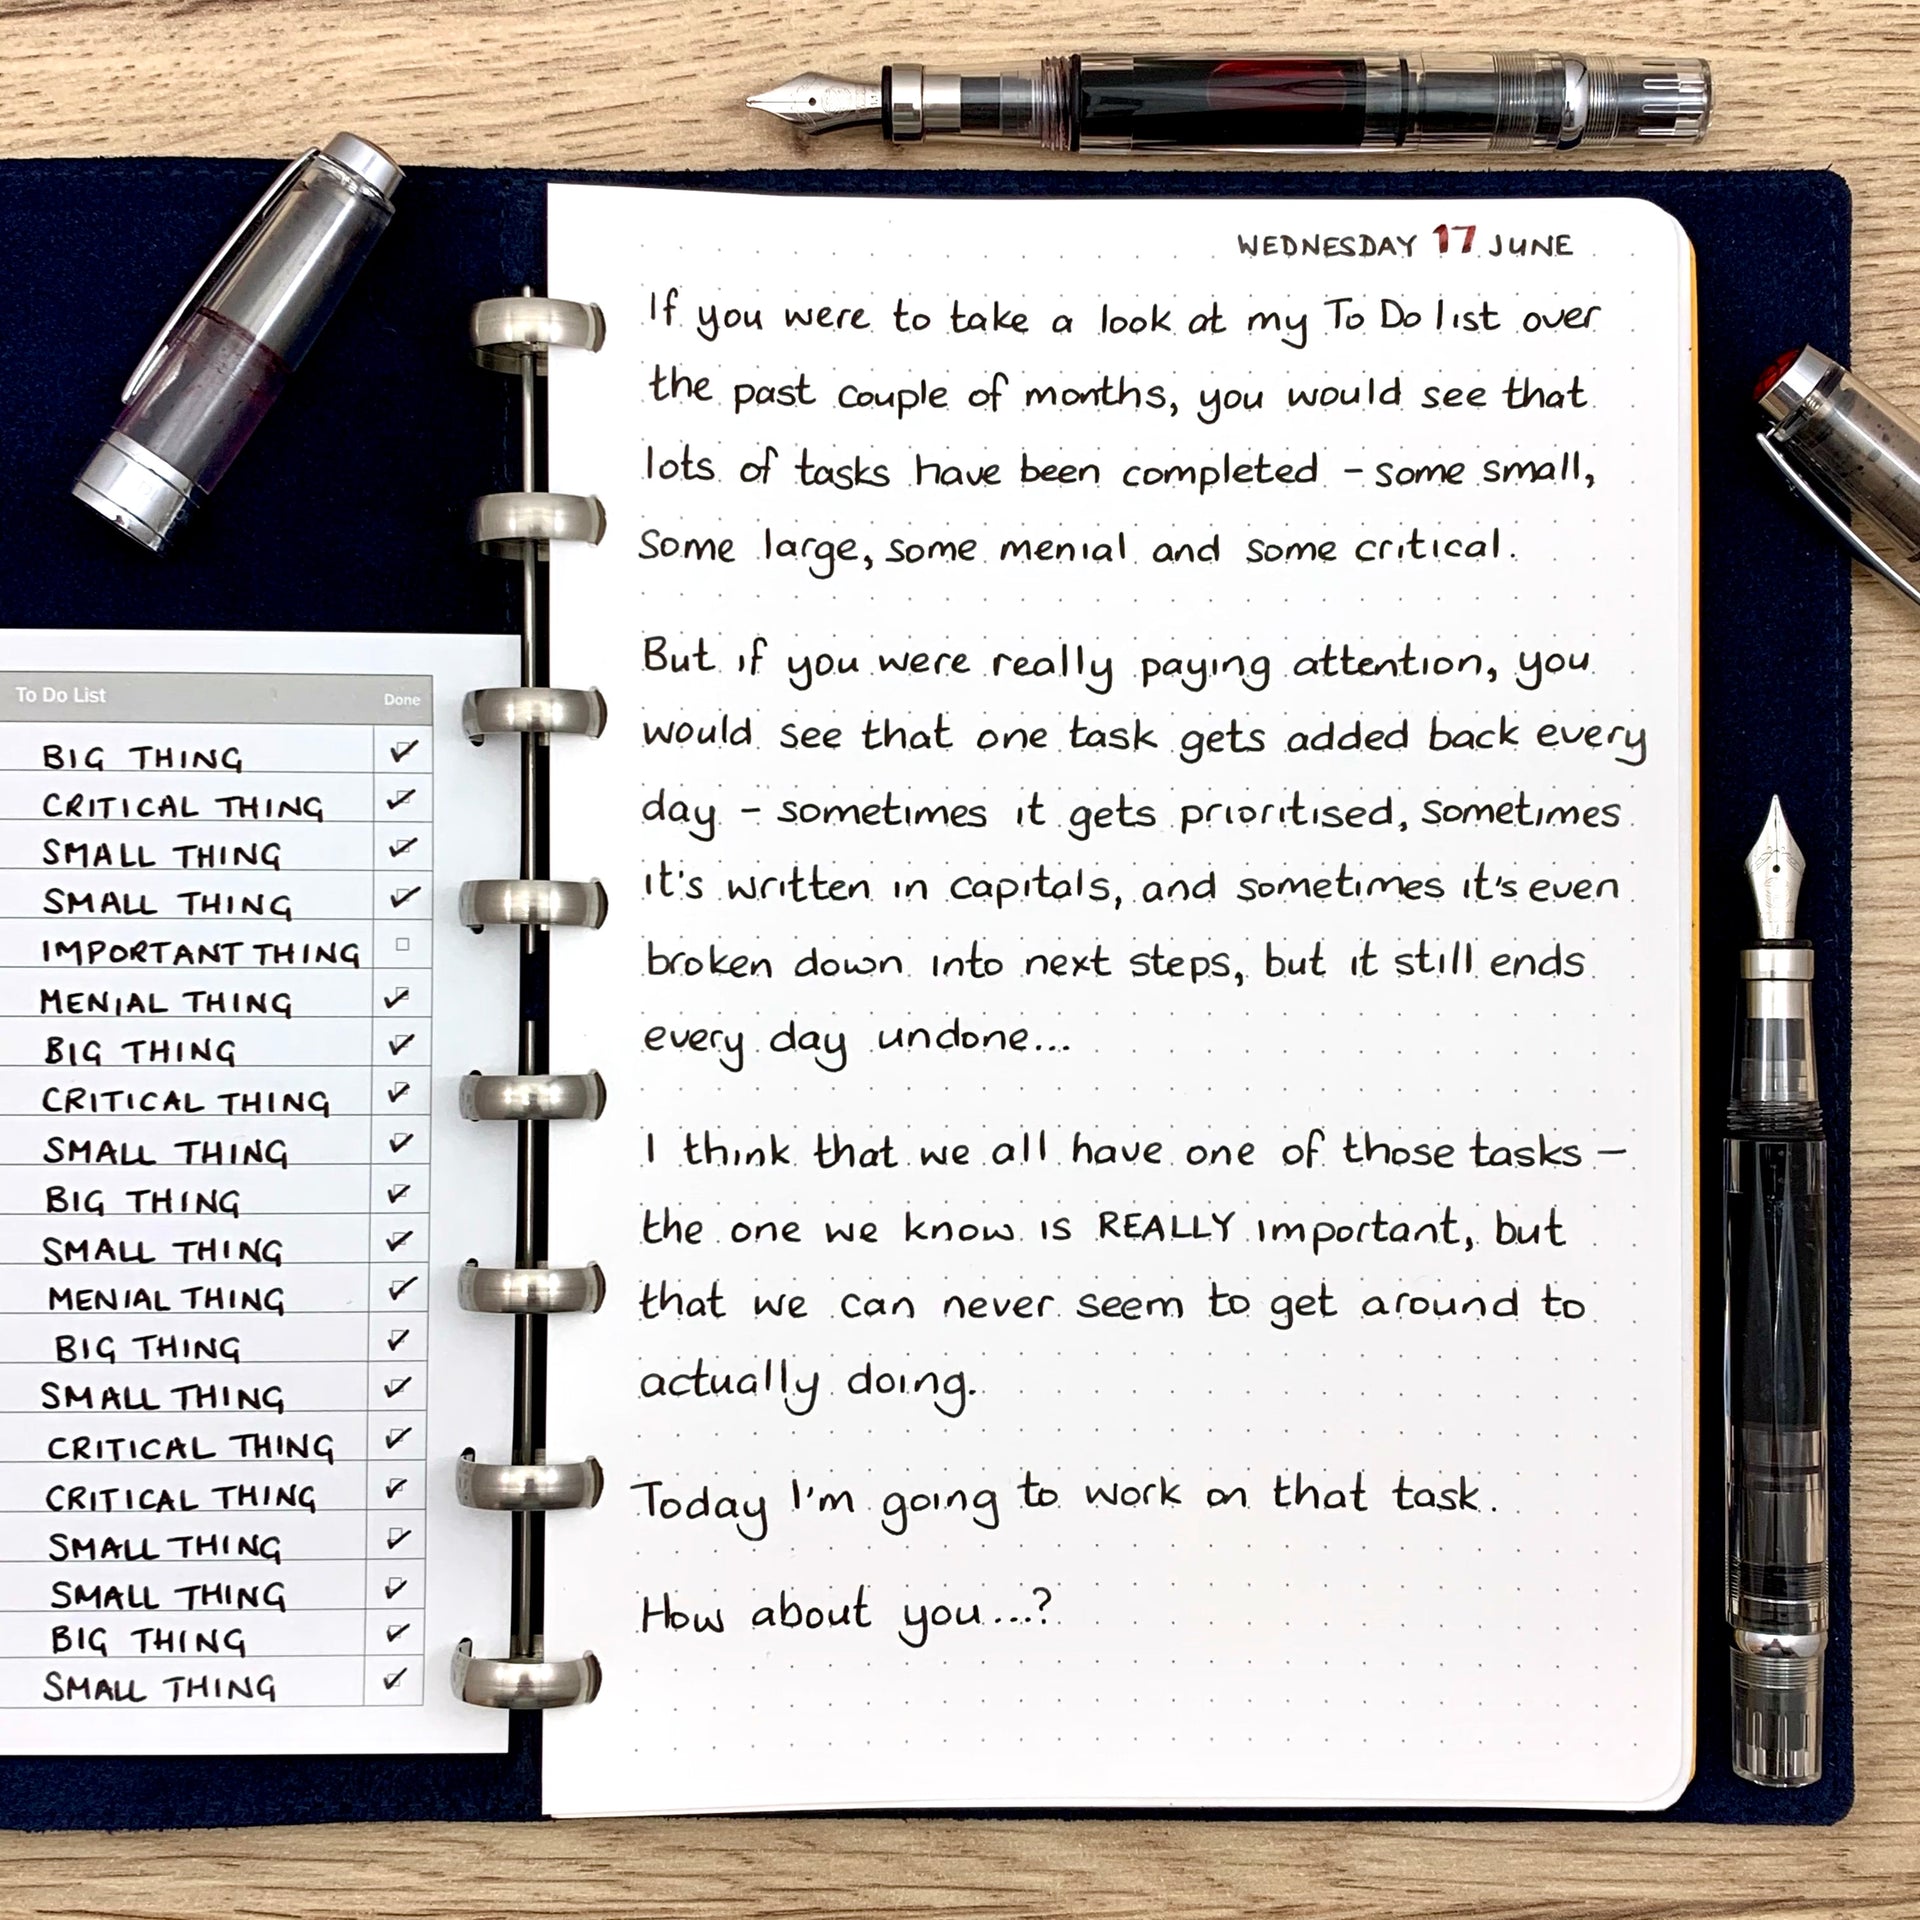 To Do List Done
BIG THING
CRITICAL THING
SMALL THING
SMALL THING
IMPORTANT THING
MENIAL THING
BIG THING
CRITICAL THING
SMALL THING
BIG THING
SMALL THING
MENIAL THING
BIG THING
SMALL THING
CRITICAL THING
CRITICAL THING
SMALL THING
SMALL THING
BIG THING
SMALL THING
WEDNESDAY 17 JUNE
If you were to take a look at my To Do list over
the past couple of months, you would see that
lots of tasks have been completed - some small,
some large, some menial and some critical.
But if you were really paying attention, you
would see that one task gets added back every
day - sometimes it gets prioritised, sometimes
it's written in capitals, and sometimes it's even
broken down into next steps, but it still ends
every day undone...
I think that we all have one of those tasks -
the one we know is REALLY important, but
that we can never seem to get around to
actually doing.
Today I'm going to work on that task.
How about you...?